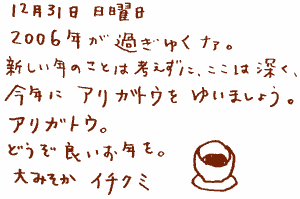 12月31日 日曜日
2006年が過ぎゆくナァ。
新しい年のことは考えずに、ここは深く、
今年に アリガトウを ゆいましょう。
アリガトウ。
どうぞ良いお年を。
大みそか イチクミ